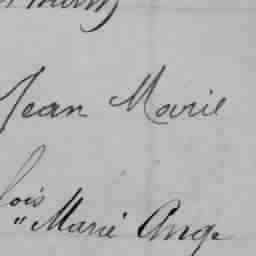 Jean Marie
lois
" Marie Ange